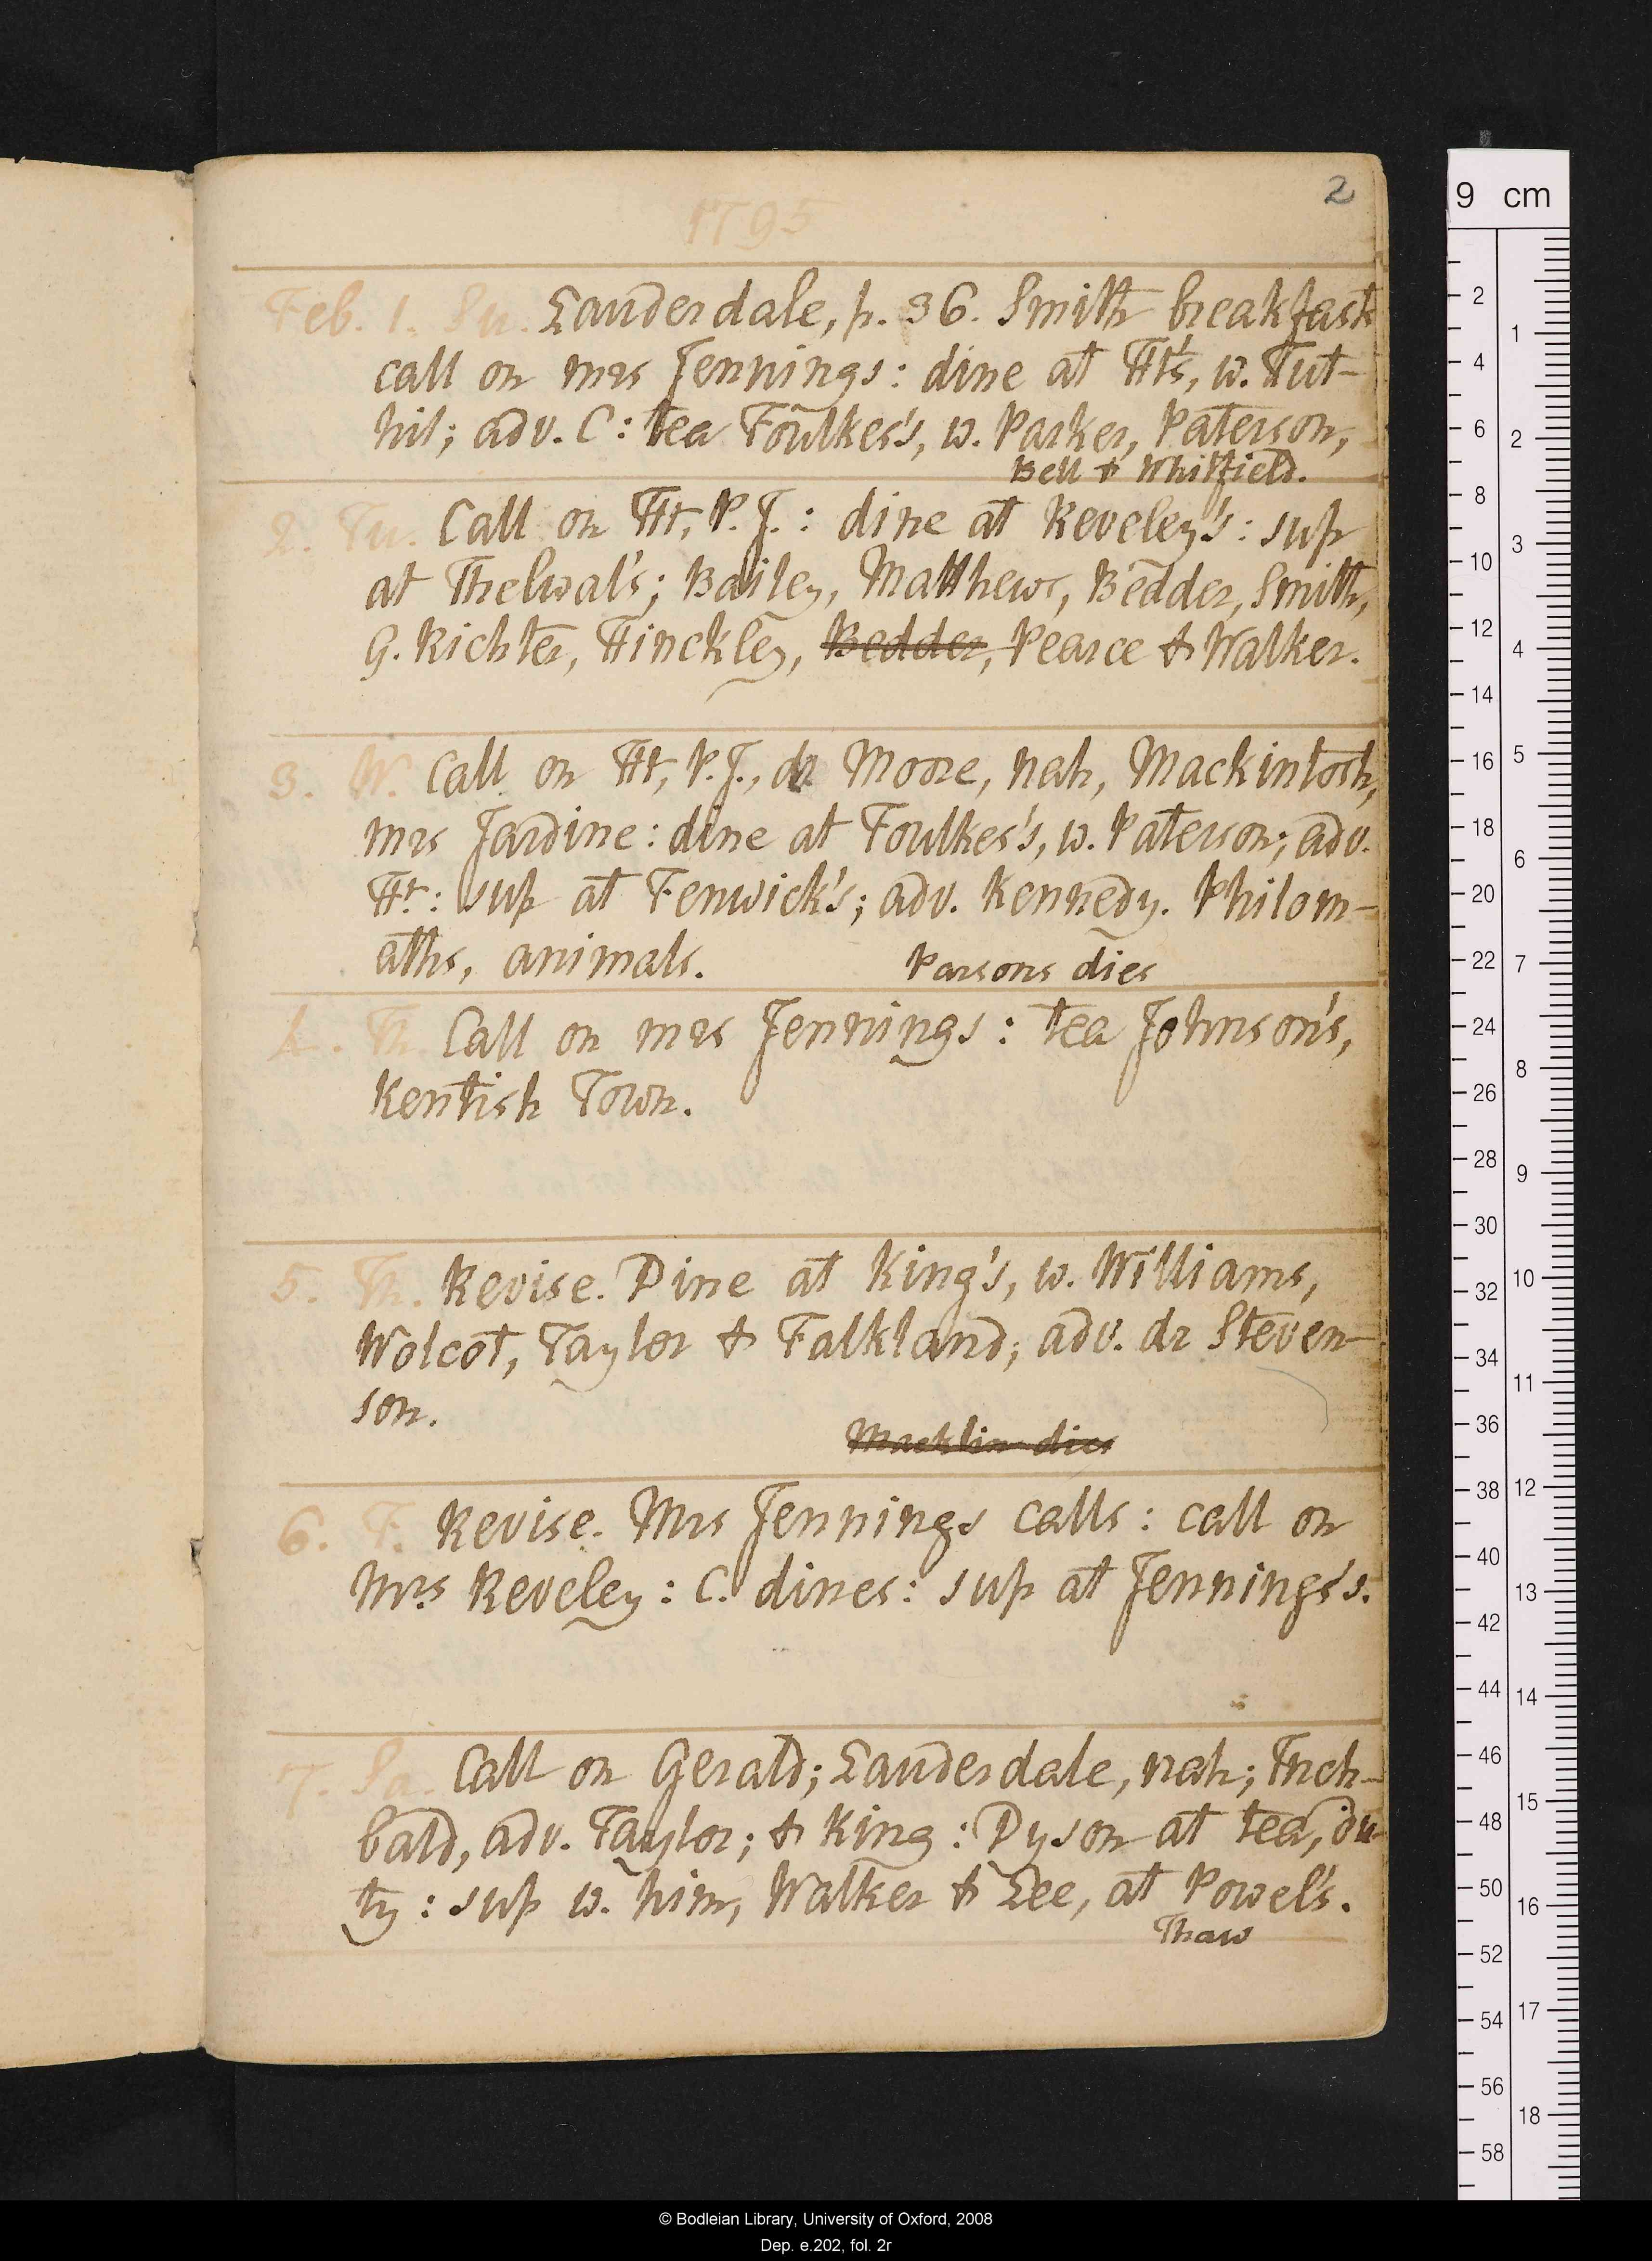 2
1795
Feb. 1. Su. Lauderdale, p. 36. Smith breakfasts
call on mrs Jennings: dine at Ht's, w. Tut-
hil; adv. C: tea Foulkes's, w. Parker, Paterson,
Bell & Whitfield.
2. Tu. Call on Ht, P. J.: dine at Reveley's: sup
at Thelwal's; Bailey, Matthews, Bedder, Smith,
G. Richter, Hinckley, Bedder, Pearce & Walker.
3. W. Call on Ht, P. J., dr Moore, nah, Mackintosh,
mrs Jardine: dine at Foulkes's, w. Paterson; adv.
Ht: sup at Fenwick's; adv. Kennedy. Philom-
aths, animals.
Parsons dies
4. Th. Call on mrs Jennings: tea Johnson's,
Kentish Town.
5. Th. Revise. Dine at King's, w. Williams,
Wolcot, Taylor & Falkland; adv. dr Steven-
son.
Macklin dies
6. F. Revise. Mrs Jennings calls: call on
Mrs Reveley: C. dines: sup at Jennings's.
7. Sa. Call on Gerald; Lauderdale, nah; Inch-
bald, adv. Taylor; & King: Dyson at tea, du-
ty: sup w. him, Walker & Lee, at Powel's.
Thaw
9 cm
2
4
6
8
10
12
14
16
18
20
22
24
26
28
30
32
34
36
38
40
42
44
46
48
50
52
54
56
58
1
2
3
4
5
6
7
8
9
10
11
12
13
14
15
16
17
18
© Bodleian Library, University of Oxford, 2008
Dep. e.202, fol. 2r